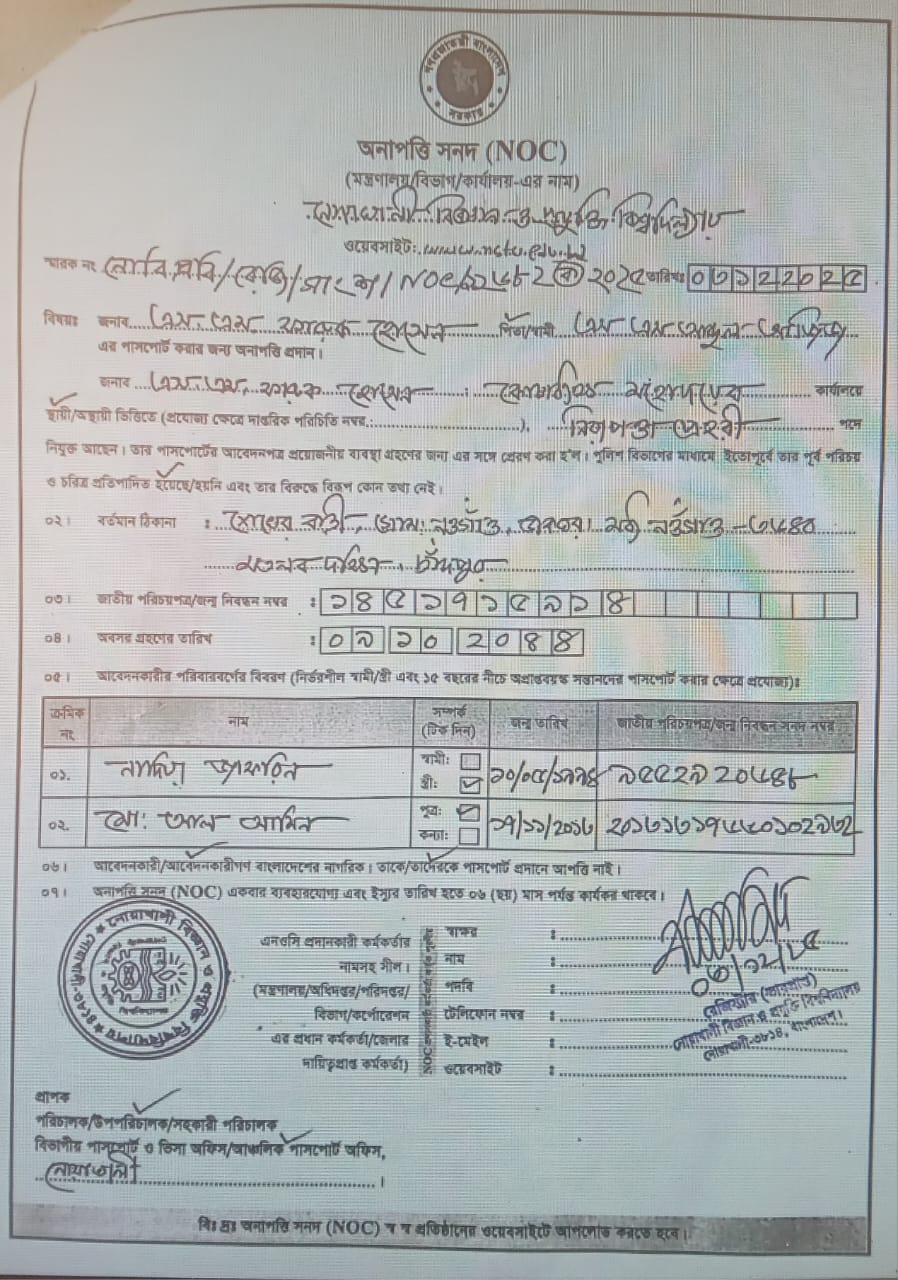 গণপ্রজাতন্ত্রী বাংলাদেশ সরকার
অনাপত্তি সনদ (NOC)
(মন্ত্রণালয়/বিভাগ/কার্যালয়-এর নাম)
নোয়াখালী বিজ্ঞান ও প্রযুক্তি বিশ্ববিদ্যালয়
ওয়েবসাইট: www.nstu.edu.bd
স্মারক নং নোবিপ্রবি/রেজি/সাং শা/NOC/ ২০২৫ তারিখঃ ০৭১২২০২৫
বিষয়ঃ জনাব এম. এম. ফারুক হোসেন পিতা/স্বামী এম এম
এর পাসপোর্ট করার জন্য অনাপত্তি প্রদান।
জনাব এম. এম. ফারুক হোসেন : কার্যালয়ে
স্থায়ী/অস্থায়ী ভিত্তিতে (প্রযোজ্য ক্ষেত্রে সামরিক পরিচিতি নম্বর.:..............), নিরাপত্তা প্রহরী পদে
নিযুক্ত আছেন। তার পাসপোর্টের আবেদনপত্র প্রয়োজনীয় ব্যবস্থা গ্রহণের জন্য এর সঙ্গে প্রেরণ করা হ'ল। পুলিশ বিভাগের মাধ্যমে ইতোপূর্বে তার পূর্ব পরিচয়
ও চরিত্র প্রতিপাদিত হয়েছে/হয়নি এবং তার বিরুদ্ধে বিরূপ কোন তথ্য নেই।
০২। বর্তমান ঠিকানা : বাড়ী, গ্রাম: নওগাঁও, ডাকঘর: নওগাঁও -৩৬৪০
মতলব দক্ষিণ, চাঁদপুর
০৩। জাতীয় পরিচয়পত্র/জন্ম নিবন্ধন নম্বর : ১৪৫১৭১৫৯১৪
০৪। অবসর গ্রহণের তারিখ : ০৯ ১০ ২০৪৪
০৫। আবেদনকারীর পরিবারবর্গের বিবরণ (নির্ভরশীল স্বামী/স্ত্রী এবং ১৫ বছরের নীচে অপ্রাপ্তবয়স্ক সন্তানদের পাসপোর্ট করার ক্ষেত্রে প্রযোজ্য)ঃ
ক্রমিক নং নাম সম্পর্ক (টিক দিন) জন্ম তারিখ জাতীয় পরিচয়পত্র/জন্ম নিবন্ধন সনদ নম্বর
০১. স্বামী: স্ত্রী: ১০/০৫/১৯৯৪ ৯৫৫২৯২০৬৪৮
০২. মো: আল আমিন পুত্র: কন্যা:
০৬। আবেদনকারী/আবেদনকারীগণ বাংলাদেশের নাগরিক। তাকে/তাদেরকে পাসপোর্ট প্রদানে আপত্তি নাই।
০৭। অনাপত্তি সনদ (NOC) একবার ব্যবহারযোগ্য এবং ইস্যুর তারিখ হতে ০৬ (ছয়) মাস পর্যন্ত কার্যকর থাকবে।
নোয়াখালী বিজ্ঞান ও প্রযুক্তি বিশ্ববিদ্যালয়
এনওসি প্রদানকারী কর্মকর্তার স্বাক্ষর :
নামসহ সীল। নাম :
(মন্ত্রণালয়/অধিদপ্তর/পরিদপ্তর/ পদবি :
বিভাগ/কর্পোরেশন টেলিফোন নম্বর :
এর প্রধান কর্মকর্তা/জেলার ই-মেইল :
দায়িত্বপ্রাপ্ত কর্মকর্তা) ওয়েবসাইট :
০৭/১২/২৫
রেজিস্ট্রার (ভারপ্রাপ্ত)
নোয়াখালী বিজ্ঞান ও প্রযুক্তি বিশ্ববিদ্যালয়
নোয়াখালী-৩৮১৪, বাংলাদেশ।
প্রাপক
পরিচালক/উপপরিচালক/সহকারী পরিচালক
বিভাগীয় পাসপোর্ট ও ভিসা অফিস/আঞ্চলিক পাসপোর্ট অফিস,
নোয়াখালী।
বিঃ দ্রঃ অনাপত্তি সনদ (NOC) স্ব স্ব প্রতিষ্ঠানের ওয়েবসাইটে আপলোড করতে হবে।